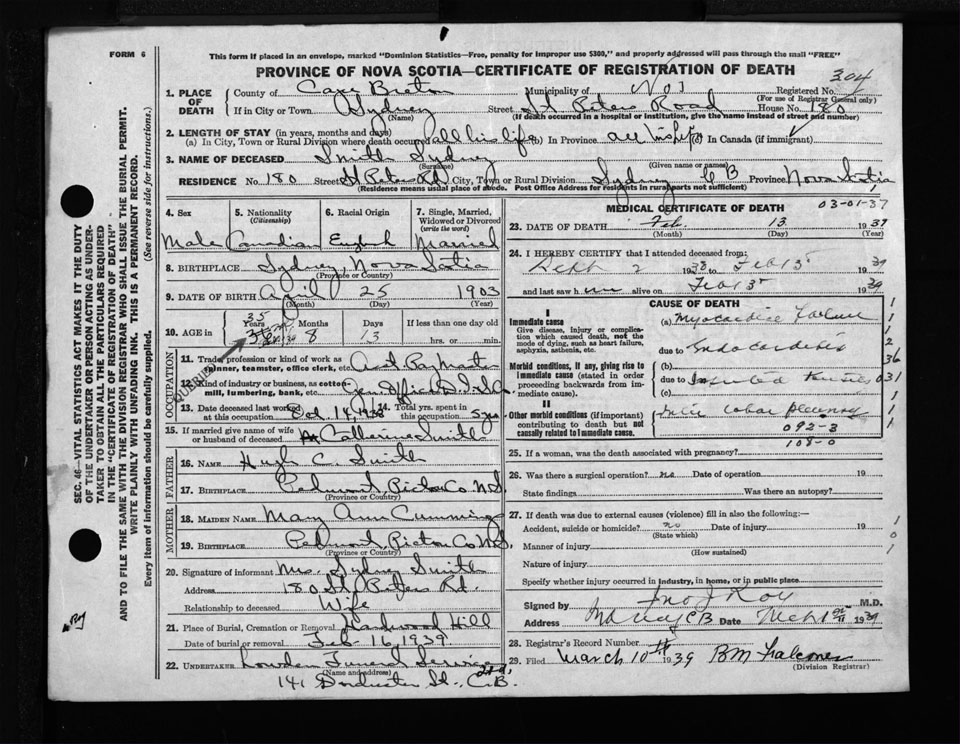 FORM 6
This form if placed in an envelope, marked "Dominion Statistics—Free, penalty for improper use $300," and properly addressed will pass through the mail "FREE"
PROVINCE OF NOVA SCOTIA—CERTIFICATE OF REGISTRATION OF DEATH
304
1. PLACE OF DEATH County of Cape Breton Municipality of No 1 Registered No.
(For use of Registrar General only)
If in City or Town Sydney Street St Peters Road House No. 180
(Name) (If death occurred in a hospital or institution, give the name instead of street and number)
2. LENGTH OF STAY (in years, months and days)
(a) In City, Town or Rural Division where death occurred all his life (b) In Province all his life (c) In Canada (if immigrant)
3. NAME OF DECEASED Smith Sydney
(Surname) (Given name or names)
RESIDENCE No. 180 Street St Peters Rd City, Town or Rural Division Sydney C B Province Nova Scotia
(Residence means usual place of abode. Post Office Address for residents in rural parts not sufficient)
4. Sex 5. Nationality (Citizenship) 6. Racial Origin 7. Single, Married, Widowed or Divorced (write the word)
Male Canadian English Married
8. BIRTHPLACE Sydney, Nova Scotia
(Province or Country)
9. DATE OF BIRTH April 25 1903
(Month) (Day) (Year)
10. AGE in 35 Years Months 8 Days 13 If less than one day old hrs. or min.
OCCUPATION
11. Trade, profession or kind of work as spinner, teamster, office clerk, etc. Asst Paymaster
12. Kind of industry or business, as cotton-mill, lumbering, bank, etc. Gen Office
13. Date deceased last worked at this occupation Oct. 14, 1938 14. Total yrs. spent in this occupation 5 yrs
15. If married give name of wife or husband of deceased Catherine Smith
FATHER
16. NAME Hugh C. Smith
17. BIRTHPLACE Pictou Co N.S.
(Province or Country)
MOTHER
18. MAIDEN NAME Mary Ann Cumming
19. BIRTHPLACE Pictou Co N.S.
(Province or Country)
20. Signature of informant Mrs. Sydney Smith
Address 180 St. Peters Rd.
Relationship to deceased Wife
21. Place of Burial, Cremation or Removal Hardwood Hill
Date of burial or removal Feb 16, 1939
22. UNDERTAKER Funeral Service
(Name and address)
141 St., C.B.
MEDICAL CERTIFICATE OF DEATH
03-01-37
23. DATE OF DEATH Feb. 13 1939
(Month) (Day) (Year)
24. I HEREBY CERTIFY that I attended deceased from:
Sept 2 1938 to Feb 13 1939
and last saw him alive on Feb 13 1939
CAUSE OF DEATH
I
Immediate cause
Give disease, injury or complication which caused death, not the mode of dying, such as heart failure, asphyxia, asthenia, etc.
(a) Myocardial Failure
due to Endocarditis
Morbid conditions, if any, giving rise to immediate cause (stated in order proceeding backwards from immediate cause).
(b)
due to Infected Tonsils
(c)
II
Other morbid conditions (if important) contributing to death but not causally related to immediate cause.
lobar
092-3
108-0
25. If a woman, was the death associated with pregnancy?
26. Was there a surgical operation? no Date of operation 19
State findings Was there an autopsy?
27. If death was due to external causes (violence) fill in also the following:—
Accident, suicide or homicide? no Date of injury 19
(State which)
Manner of injury
(How sustained)
Nature of injury
Specify whether injury occurred in industry, in home, or in public place
Signed by Jno J Roy M.D.
Address Sydney CB Date 1939
28. Registrar's Record Number
29. Filed March 10th 1939 B M Falconer
(Division Registrar)
SEC. 46—VITAL STATISTICS ACT MAKES IT THE DUTY OF THE UNDERTAKER OR PERSON ACTING AS UNDERTAKER TO OBTAIN ALL THE PARTICULARS REQUIRED IN THE "CERTIFICATE OF REGISTRATION OF DEATH"
AND TO FILE THE SAME WITH THE DIVISION REGISTRAR WHO SHALL ISSUE THE BURIAL PERMIT.
WRITE PLAINLY WITH UNFADING INK. THIS IS A PERMANENT RECORD.
Every item of information should be carefully supplied. (See reverse side for instructions.)